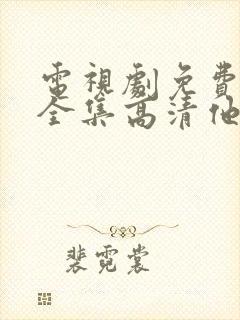 電視劇免費
全集高清他
裴霓裳